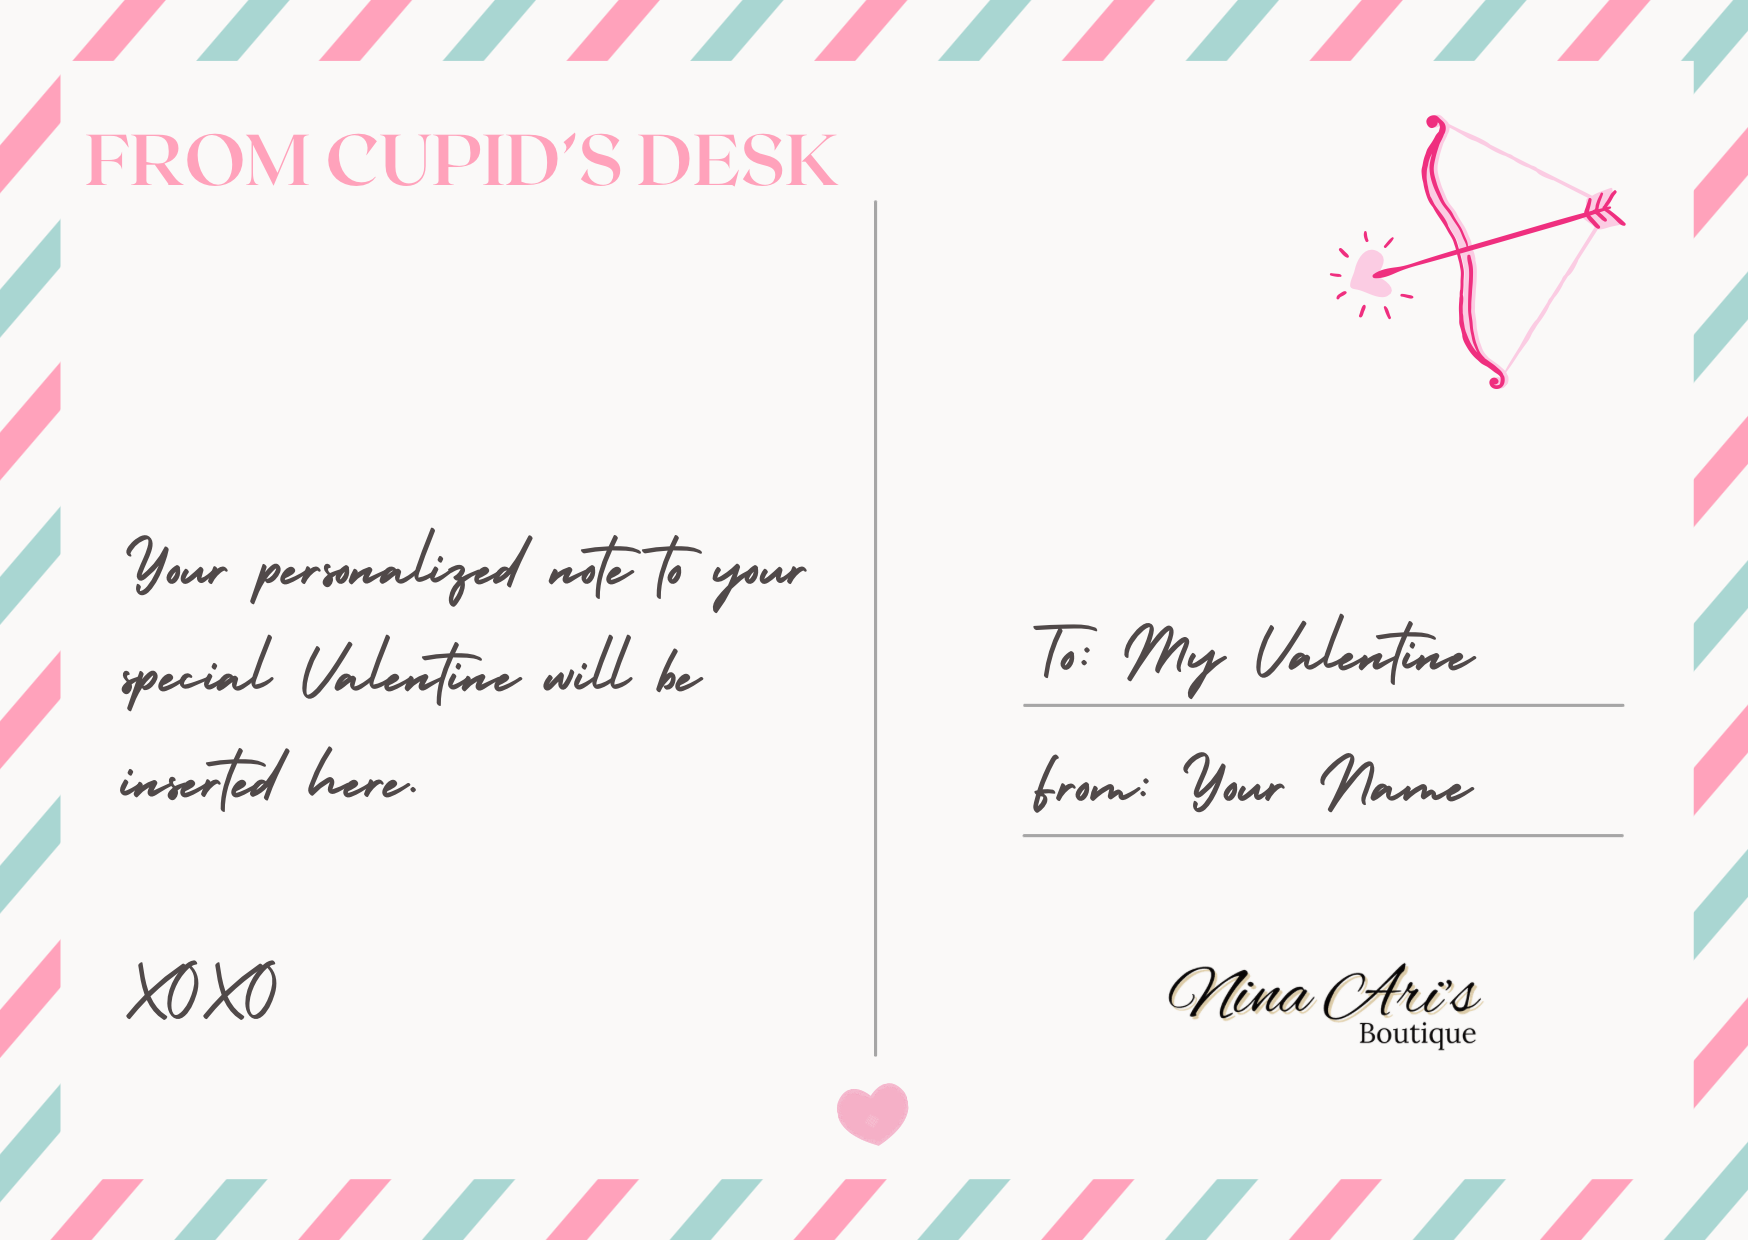 FROM CUPID'S DESK
Your personalized note to your
special Valentine will be
inserted here.
XOXO
To: My Valentine
from: Your Name
Nina Ari's
Boutique